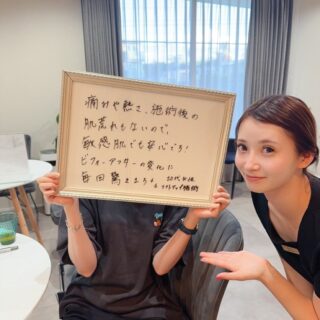 痛みや熱さ、施術後の
肌荒れもないので、
敏感肌でも安心です!
ビフォーアフターの変化に
毎回驚きます♪